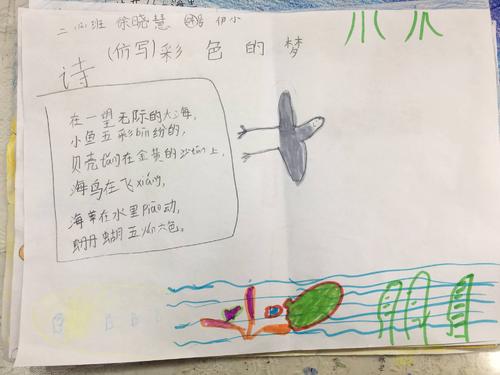 二(3)班 徐晓慧
(仿写)彩色的梦
诗
在一望无际的大海,
小鱼五彩bīn纷的,
贝壳tǎng在金黄的沙tān上,
海鸟在飞xiáng,
海草在水里piāo动,
珊瑚五yán六色。